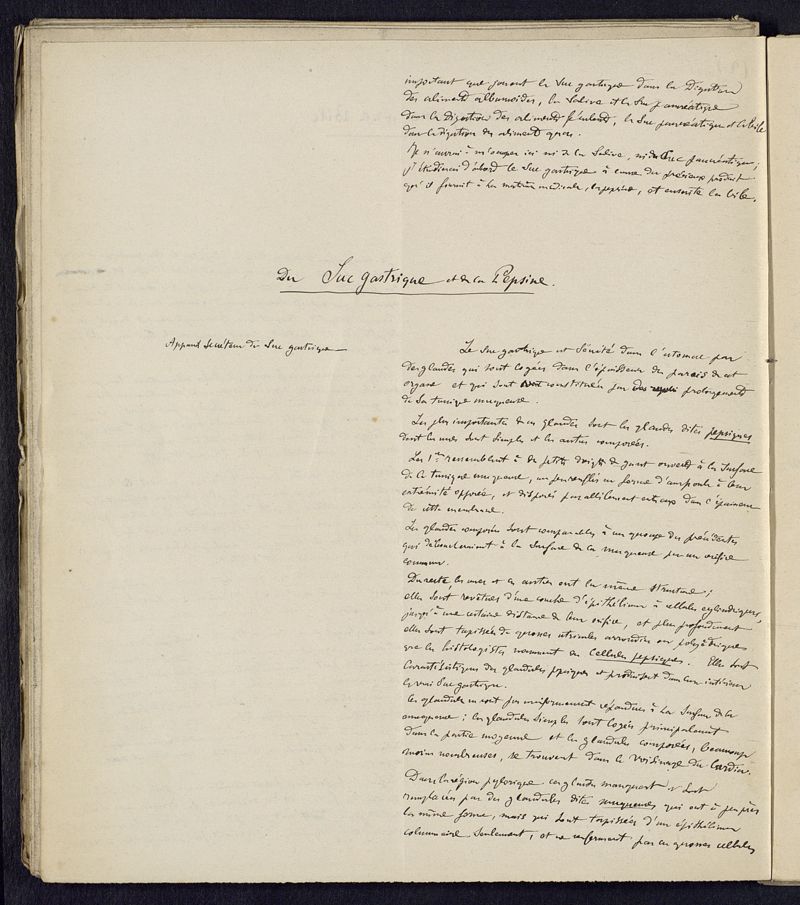 important que jouent le Suc gastrique dans la Digestion
des aliments albuminoïdes, la Salive et le Suc pancréatique
dans la Digestion des aliments féculents, le Suc pancréatique et la bile
dans la digestion des aliments gras.
Je n'aurai à m'occuper ici ni de la Salive, ni du Suc pancréatique;
j'étudierai d'abord le Suc gastrique à cause du précieux produit
qu'il fournit à la matière médicale, la pepsine, et ensuite la bile.
Du Suc gastrique et de la Pepsine.
Appareil Secréteur du Suc gastrique
Le Suc gastrique est Sécrété dans l'estomac par
des glandes qui sont logées dans l'épaisseur des parois de cet
organe et qui sont constituées par des prolongements
de sa tunique muqueuse.
Les plus importantes de ces glandes sont les glandes dites pepsiques
dont les unes sont simples et les autres composées.
Les 1ères ressemblent à de petits doigts de gant ouverts à la Surface
de la tunique muqueuse, un peu renflés en forme d'ampoule à leur
extrémité opposée, et disposés parallèlement entr'eux dans l'épaisseur
de cette membrane.
Les glandes composées sont comparables à un groupe des précédentes
qui déboucheraient à la Surface de la muqueuse par un orifice
commun.
Du reste, les unes et les autres ont la même structure;
elles sont revêtues d'une couche d'épithélium à cellules cylindriques,
jusqu'à une certaine distance de leur orifice, et plus profondément
elles sont tapissées de grosses utricules arrondies ou polyédriques
que les histologistes nomment les Cellules pepsiques. Elles sont
caractéristiques des glandules pepsiques et produisent dans leur intérieur
le vrai Suc gastrique.
Ces glandules ne sont pas uniformément répandues à la Surface de la
muqueuse; les glandules simples sont logées principalement
dans la partie moyenne et les glandules composées, beaucoup
moins nombreuses, se trouvent dans le voisinage du Cardia.
Dans la région pylorique ces glandes manquent et sont
remplacées par des glandules dites muqueuses qui ont à peu près
la même forme, mais qui sont tapissées d'un épithélium
columnaire Seulement, et ne renferment pas les grosses cellules